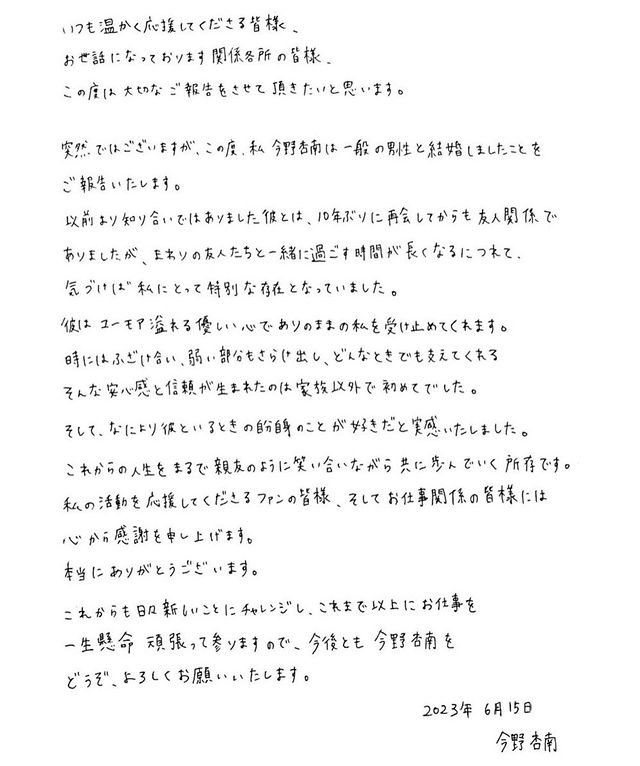 いつも温かく応援してくださる皆様、
お世話になっております関係各所の皆様、
この度は大切なご報告をさせて頂きたいと思います。
突然ではございますが、この度、私 今野杏南は一般の男性と結婚しましたことを
ご報告いたします。
以前より知り合いではありました彼とは、10年ぶりに再会してからも友人関係で
ありましたが、まわりの友人たちと一緒に過ごす時間が長くなるにつれて、
気づけば私にとって特別な存在となっていました。
彼はユーモア溢れる優しい心でありのままの私を受け止めてくれます。
時にはふざけ合い、弱い部分もさらけ出し、どんなときでも支えてくれる
そんな安心感と信頼が生まれたのは家族以外で初めてでした。
そして、なにより彼といるときの自分自身のことが好きだと実感いたしました。
これからの人生をまるで親友のように笑い合いながら共に歩んでいく所存です。
私の活動を応援してくださるファンの皆様、そしてお仕事関係の皆様には
心から感謝を申し上げます。
本当にありがとうございます。
これからも日々新しいことにチャレンジし、これまで以上にお仕事を
一生懸命 頑張って参りますので、今後とも 今野杏南を
どうぞ、よろしくお願いいたします。
2023年 6月15日
今野杏南